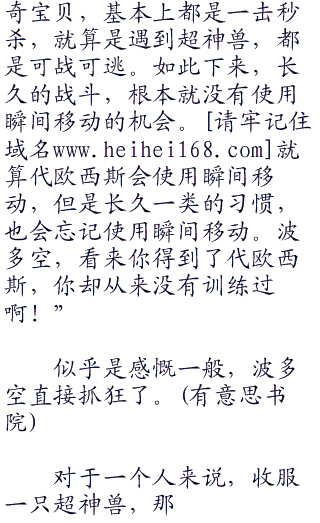 奇宝贝，基本上都是一击秒
杀，就算是遇到超神兽，都
是可战可逃。如此下来，长
久的战斗，根本就没有使用
瞬间移动的机会。[请牢记住
域名www.heihei168.com]就
算代欧西斯会使用瞬间移
动，但是长久一类的习惯，
也会忘记使用瞬间移动。波
多空，看来你得到了代欧西
斯，你却从来没有训练过
啊！”
似乎是感慨一般，波多
空直接抓狂了。(有意思书
院)
对于一个人来说，收服
一只超神兽，那